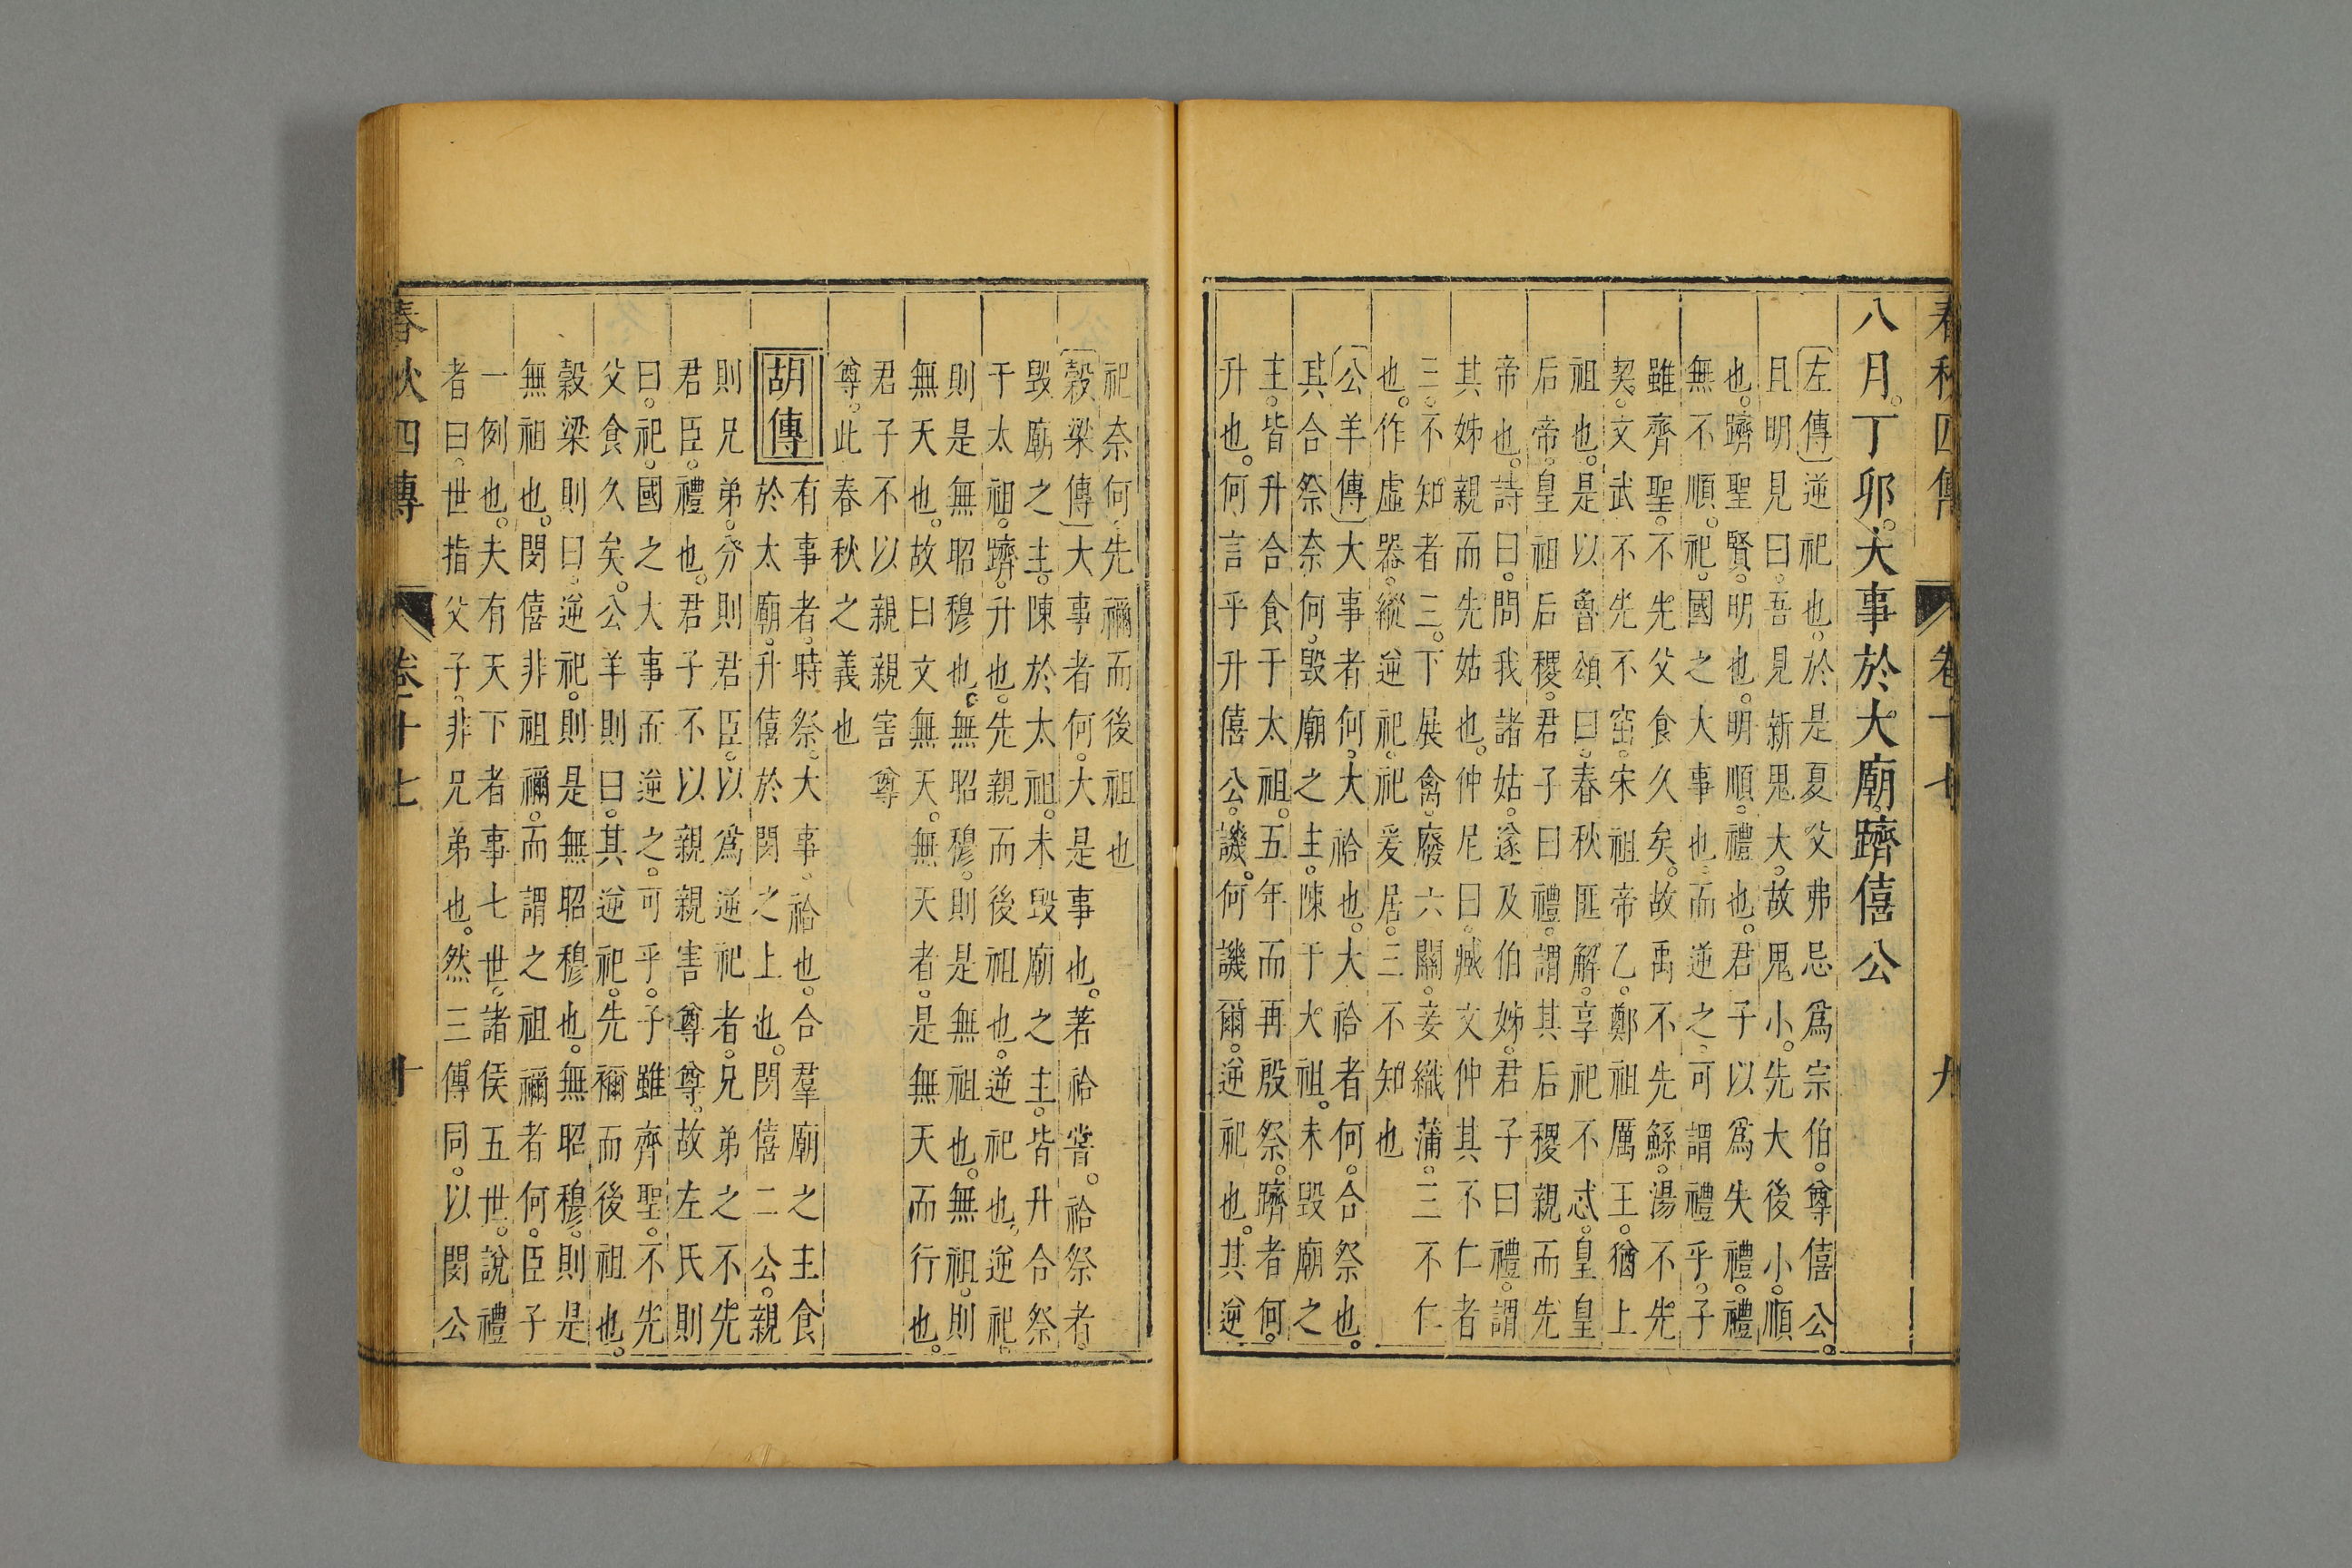 春秋四傳 卷十七 九
八月。丁卯。大事於大廟。躋僖公
左傳 逆祀也。於是夏父弗忌爲宗伯。尊僖公。
且明見曰。吾見新鬼大。故鬼小。先大後小。順
也。躋聖賢。明也。明順。禮也。君子以爲失禮。禮
無不順。祀。國之大事也。而逆之。可謂禮乎。子
雖齊聖。不先父食久矣。故禹不先鯀。湯不先
契。文武不先不窋。宋祖帝乙。鄭祖厲王。猶上
祖也。是以魯頌曰。春秋匪解。享祀不忒。皇皇
后帝。皇祖后稷。君子曰禮。謂其后稷親而先
帝也。詩曰。問我諸姑。遂及伯姊。君子曰禮。謂
其姊親而先姑也。仲尼曰。臧文仲其不仁者
三。不知者三。下展禽。廢六關。妾織蒲。三不仁
也。作虛器。縱逆祀。祀爰居。三不知也
公羊傳 大事者何。大祫也。大祫者何。合祭也。
其合祭奈何。毀廟之主。陳于大祖。未毀廟之
主。皆升合食于太祖。五年而再殷祭。躋者何。
升也。何言乎升僖公。譏。何譏爾。逆祀也。其逆
祀奈何。先禰而後祖也
穀梁傳 大事者何。大是事也。著祫嘗。祫祭者。
毀廟之主。陳於太祖。未毀廟之主。皆升合祭
于太祖。躋。升也。先親而後祖也。逆祀也。逆祀。
則是無昭穆也。無昭穆。則是無祖也。無祖。則
無天也。故曰文無天。無天者。是無天而行也。
君子不以親親害尊
尊。此春秋之義也
胡傳 有事者。時祭。大事。祫也。合羣廟之主食
於太廟。升僖於閔之上也。閔僖二公。親
則兄弟。分則君臣。以爲逆祀者。兄弟之不先
君臣。禮也。君子不以親親害尊尊。故左氏則
曰。祀。國之大事而逆之。可乎。子雖齊聖。不先
父食久矣。公羊則曰。其逆祀。先禰而後祖也。
穀梁則曰。逆祀。則是無昭穆也。無昭穆。則是
無祖也。閔僖非祖禰。而謂之祖禰者何。臣子
一例也。夫有天下者事七世。諸侯五世。說禮
者曰。世指父子。非兄弟也。然三傳同。以閔公
春秋四傳 卷十七 十